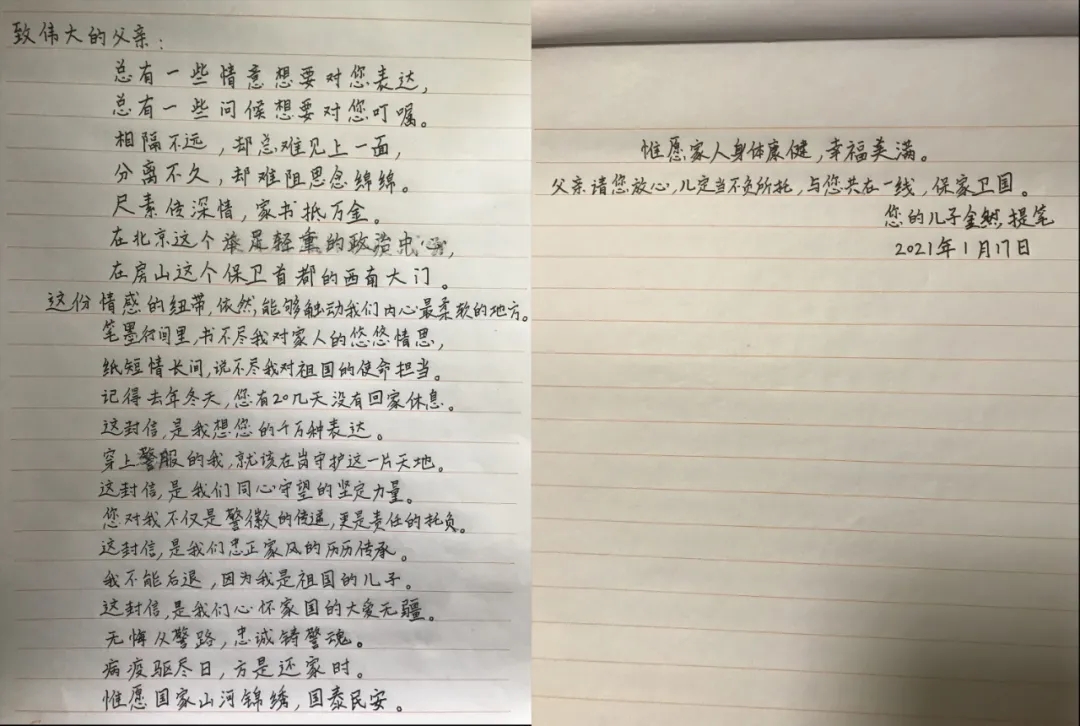 致伟大的父亲：
总有一些情意想要对您表达，
总有一些问候想要对您叮嘱。
相隔不远，却总难见上一面，
分离不久，却难阻思念绵绵。
尺素传深情，家书抵万金。
在北京这个举足轻重的政治中心，
在房山这个保卫首都的西南大门。
这份情感的纽带，依然能够触动我们内心最柔软的地方。
笔墨行间里，书不尽我对家人的悠悠情思，
纸短情长间，说不尽我对祖国的使命担当。
记得去年冬天，您有20几天没有回家休息。
这封信，是我想您的千万种表达。
穿上警服的我，就该在岗守护这一片天地。
这封信，是我们同心守望的坚定力量。
您对我不仅是警徽的传递，更是责任的托负。
这封信，是我们忠正家风的历历传承。
我不能后退，因为我是祖国的儿子。
这封信，是我们心怀家国的大爱无疆。
无悔从警路，忠诚铸警魂。
病疫驱尽日，方是还家时。
惟愿国家山河锦绣，国泰民安。
惟愿家人身体康健，幸福美满。
父亲请您放心，儿定当不负所托，与您共在一线，保家卫国。
您的儿子金然，提笔
2021年1月17日